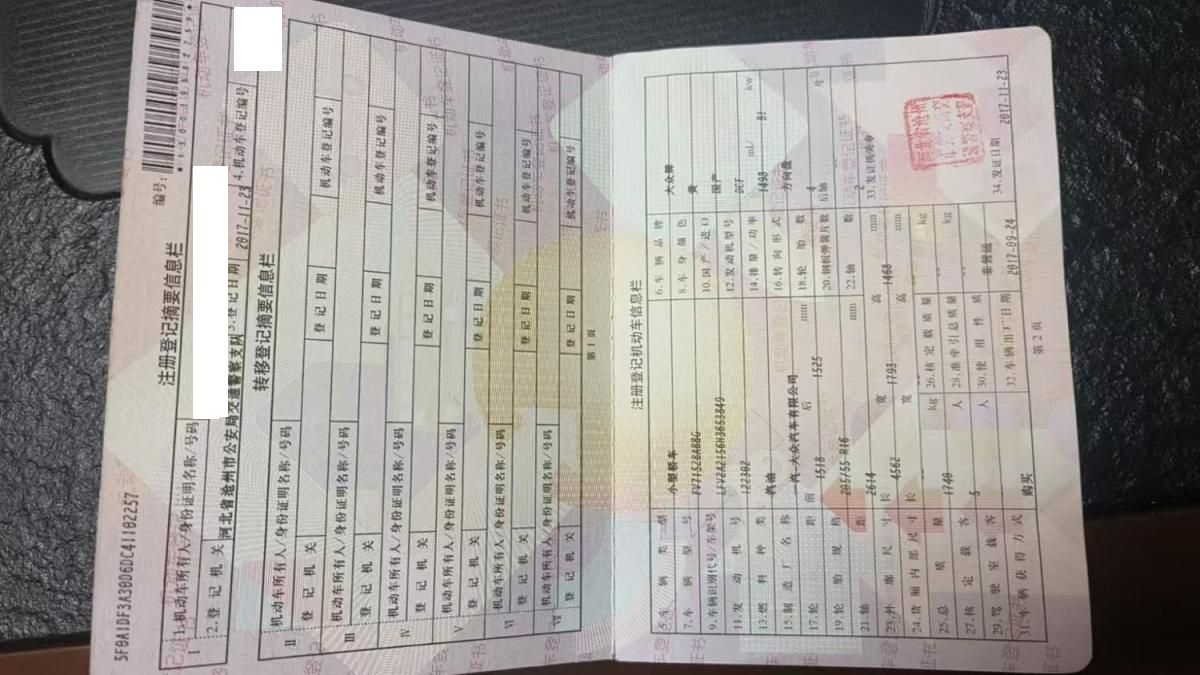 5F0A1DF3A38D6DC41102257
编号:
注册登记摘要信息栏
Ⅰ 1.机动车所有人/身份证明名称/号码
2.登记机关 河北省沧州市公安局交通警察支队 3.登记日期 2017-11-23 4.机动车登记编号
转移登记摘要信息栏
Ⅱ 机动车所有人/身份证明名称/号码
登记机关 登记日期 机动车登记编号
Ⅲ 机动车所有人/身份证明名称/号码
登记机关 登记日期 机动车登记编号
Ⅳ 机动车所有人/身份证明名称/号码
登记机关 登记日期 机动车登记编号
Ⅴ 机动车所有人/身份证明名称/号码
登记机关 登记日期 机动车登记编号
Ⅵ 机动车所有人/身份证明名称/号码
登记机关 登记日期 机动车登记编号
Ⅶ 机动车所有人/身份证明名称/号码
登记机关 登记日期 机动车登记编号
第 1 页
注册登记机动车信息栏
5.车辆类型 小型轿车 6.车辆品牌 大众牌
7.车辆型号 FV7152BABBG 8.车身颜色 黄
9.车辆识别代号/车架号 LFV2A2156H3653849 10.国产/进口 国产
11.发动机号 122302 12.发动机型号 DCF
13.燃料种类 汽油 14.排量/功率 1498 mL/ 81 kw
15.制造厂名称 一汽-大众汽车有限公司 16.转向形式 方向盘
17.轮距 前 1518 后 1525 mm 18.轮胎数 4
19.轮胎规格 205/55 R16 20.钢板弹簧片数 后轴 片
21.轴距 2614 mm 22.轴数 2
23.外廓尺寸 长 4562 宽 1793 高 1468 mm 33.发证机关章
24.货厢内部尺寸 长 宽 高 mm
25.总质量 1740 kg 26.核定载质量 kg
27.核定载客 5 人 28.准牵引总质量 kg
29.驾驶室载客 人 30.使用性质 非营运
31.车辆获得方式 购买 32.车辆出厂日期 2017-09-24 34.发证日期 2017-11-23
第 2 页